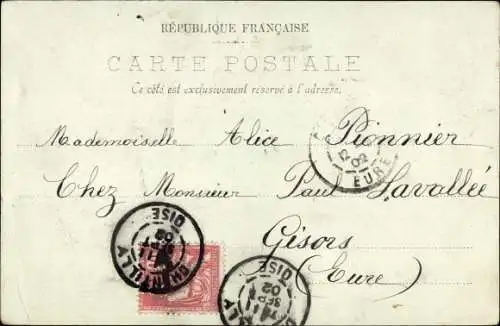 RÉPUBLIQUE FRANÇAISE
CARTE POSTALE
Ce côté est exclusivement réservé à l'adresse.
Mademoiselle Alice Pionnier
Chez Monsieur Paul Lavallée
Gisors
(Eure)
12
02
EURE
OISE
02
SEPT
02
OISE